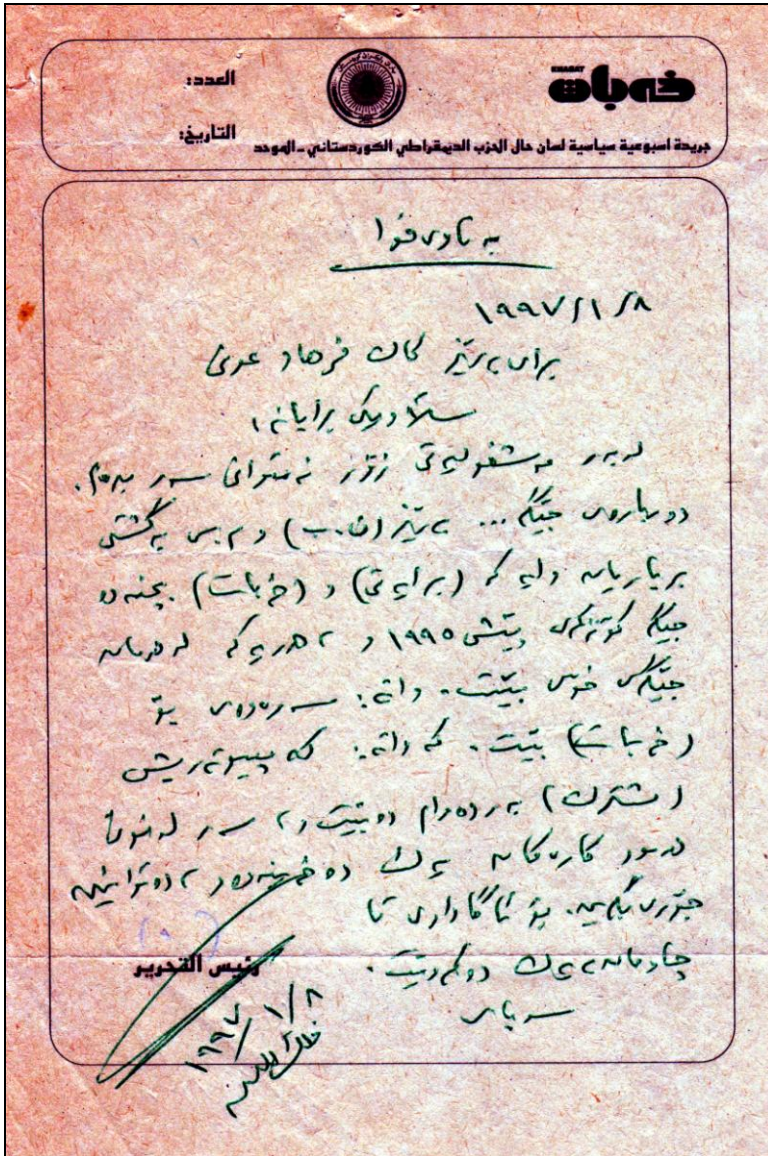 KHABAT
خەبات
العدد:
التاريخ:
جريدة اسبوعية سياسية لسان حال الحزب الديمقراطي الكوردستاني - الموحد
بە ناوی خوا
١٩٩٧/١/٨
برای بەڕێز کاک فرهاد عونی
سڵاوێکی برایانە،
لەبەر مەشغولیەتی زۆر نەمتوانی سەر بدەم.
دەربارەی جێگە ... بەڕێز
بڕیاریان وایە کە (برایەتی) و (خەبات) بچنەوە
جێگە کۆنەکەی پێشی ١٩٩٥ و هەریەکە لە
جێگەی خۆی بێت. واتە: سەرەوەی بۆ
(خەبات) بێت. کە واتە: کۆمپیوتەریش
(مشترك) بەردەوام دەبێت و سەر لەنوێ
کارەکان یەک دەخەینەوە و دەتوانین
بۆ ئاگاداری تا
چاومان بە یەک دەکەوێت.
سوپاس
رئيس التحرير
١٩٩٧/١/٨